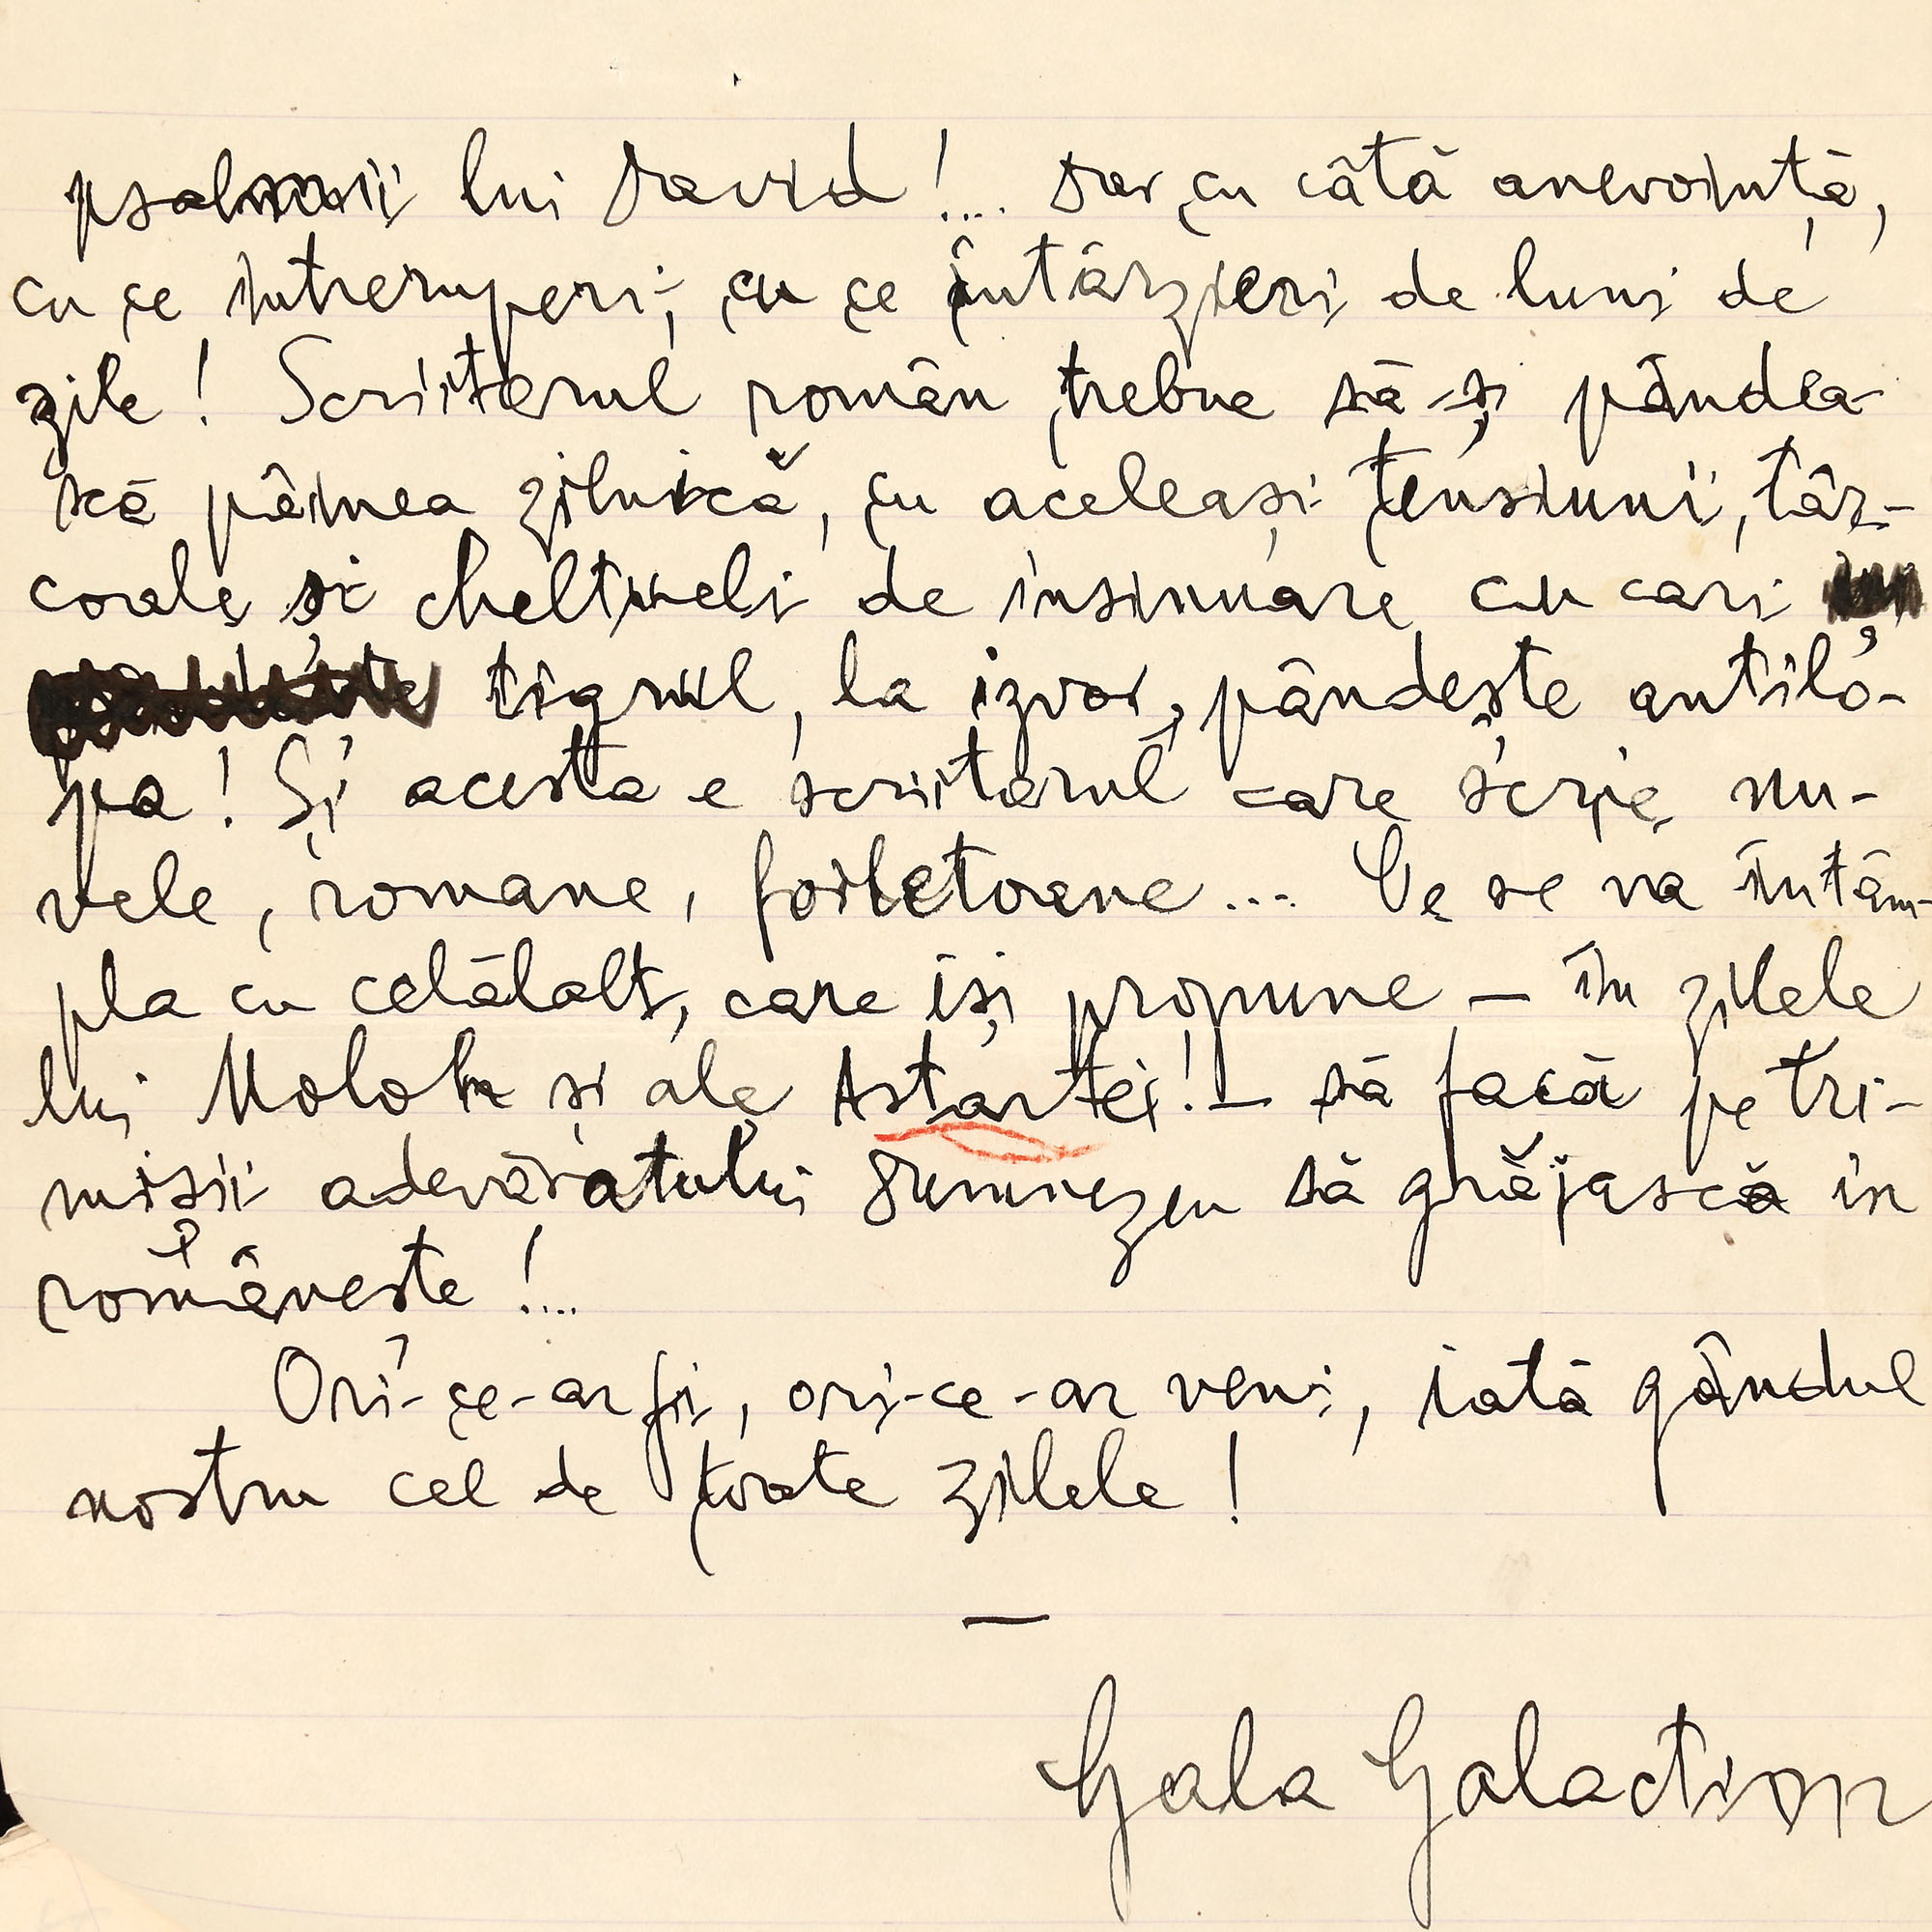 psalmii lui David!... Dar cu câtă anevoință,
cu ce întreruperi, cu ce întârzieri de luni de
zile! Scriitorul român trebue să-și pândea-
scă pâinea zilnică, cu aceleași tensiuni, târ-
coale și cheltueli de insinuare cu cari
tigrul, la izvor, pândește antilo-
pa! Și acesta e scriitorul care scrie nu-
vele, romane, foiletoane... Ce se va întâm-
pla cu celălalt, care își propune – în zilele
lui Moloh și ale Astartei! – să facă pe tri-
mișii adevăratului Dumnezeu să grăjască în
românește!...
Ori-ce-ar fi, ori-ce-ar veni, iată gândul
nostru cel de toate zilele!
—
Gala Galaction